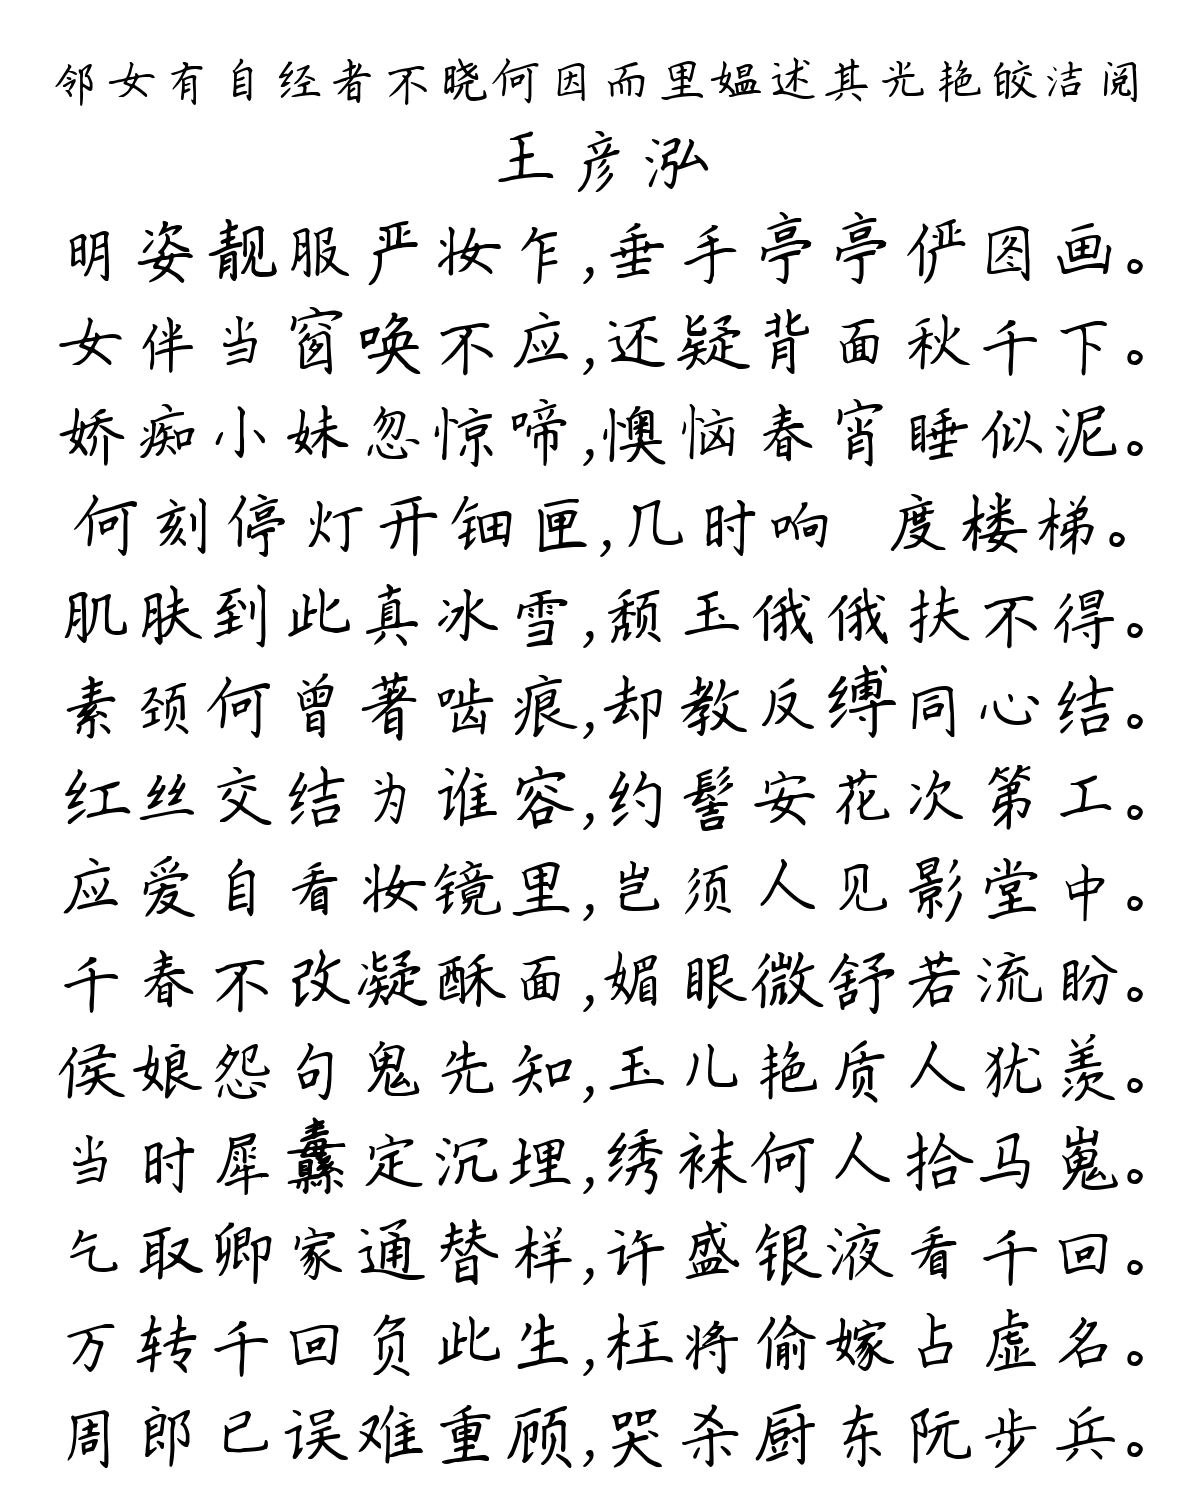 邻女有自经者不晓何因而里媪述其光艳皎洁阅
王彦泓
明姿靓服严妆乍,垂手亭亭俨图画。
女伴当窗唤不应,还疑背面秋千下。
娇痴小妹忽惊啼,懊恼春宵睡似泥。
何刻停灯开钿匣,几时响 度楼梯。
肌肤到此真冰雪,颓玉俄俄扶不得。
素颈何曾著啮痕,却教反缚同心结。
红丝交结为谁容,约髻安花次第工。
应爱自看妆镜里,岂须人见影堂中。
千春不改凝酥面,媚眼微舒若流盼。
侯娘怨句鬼先知,玉儿艳质人犹羡。
当时犀纛定沉埋,绣袜何人拾马嵬。
乞取卿家通替样,许盛银液看千回。
万转千回负此生,枉将偷嫁占虚名。
周郎已误难重顾,哭杀厨东阮步兵。